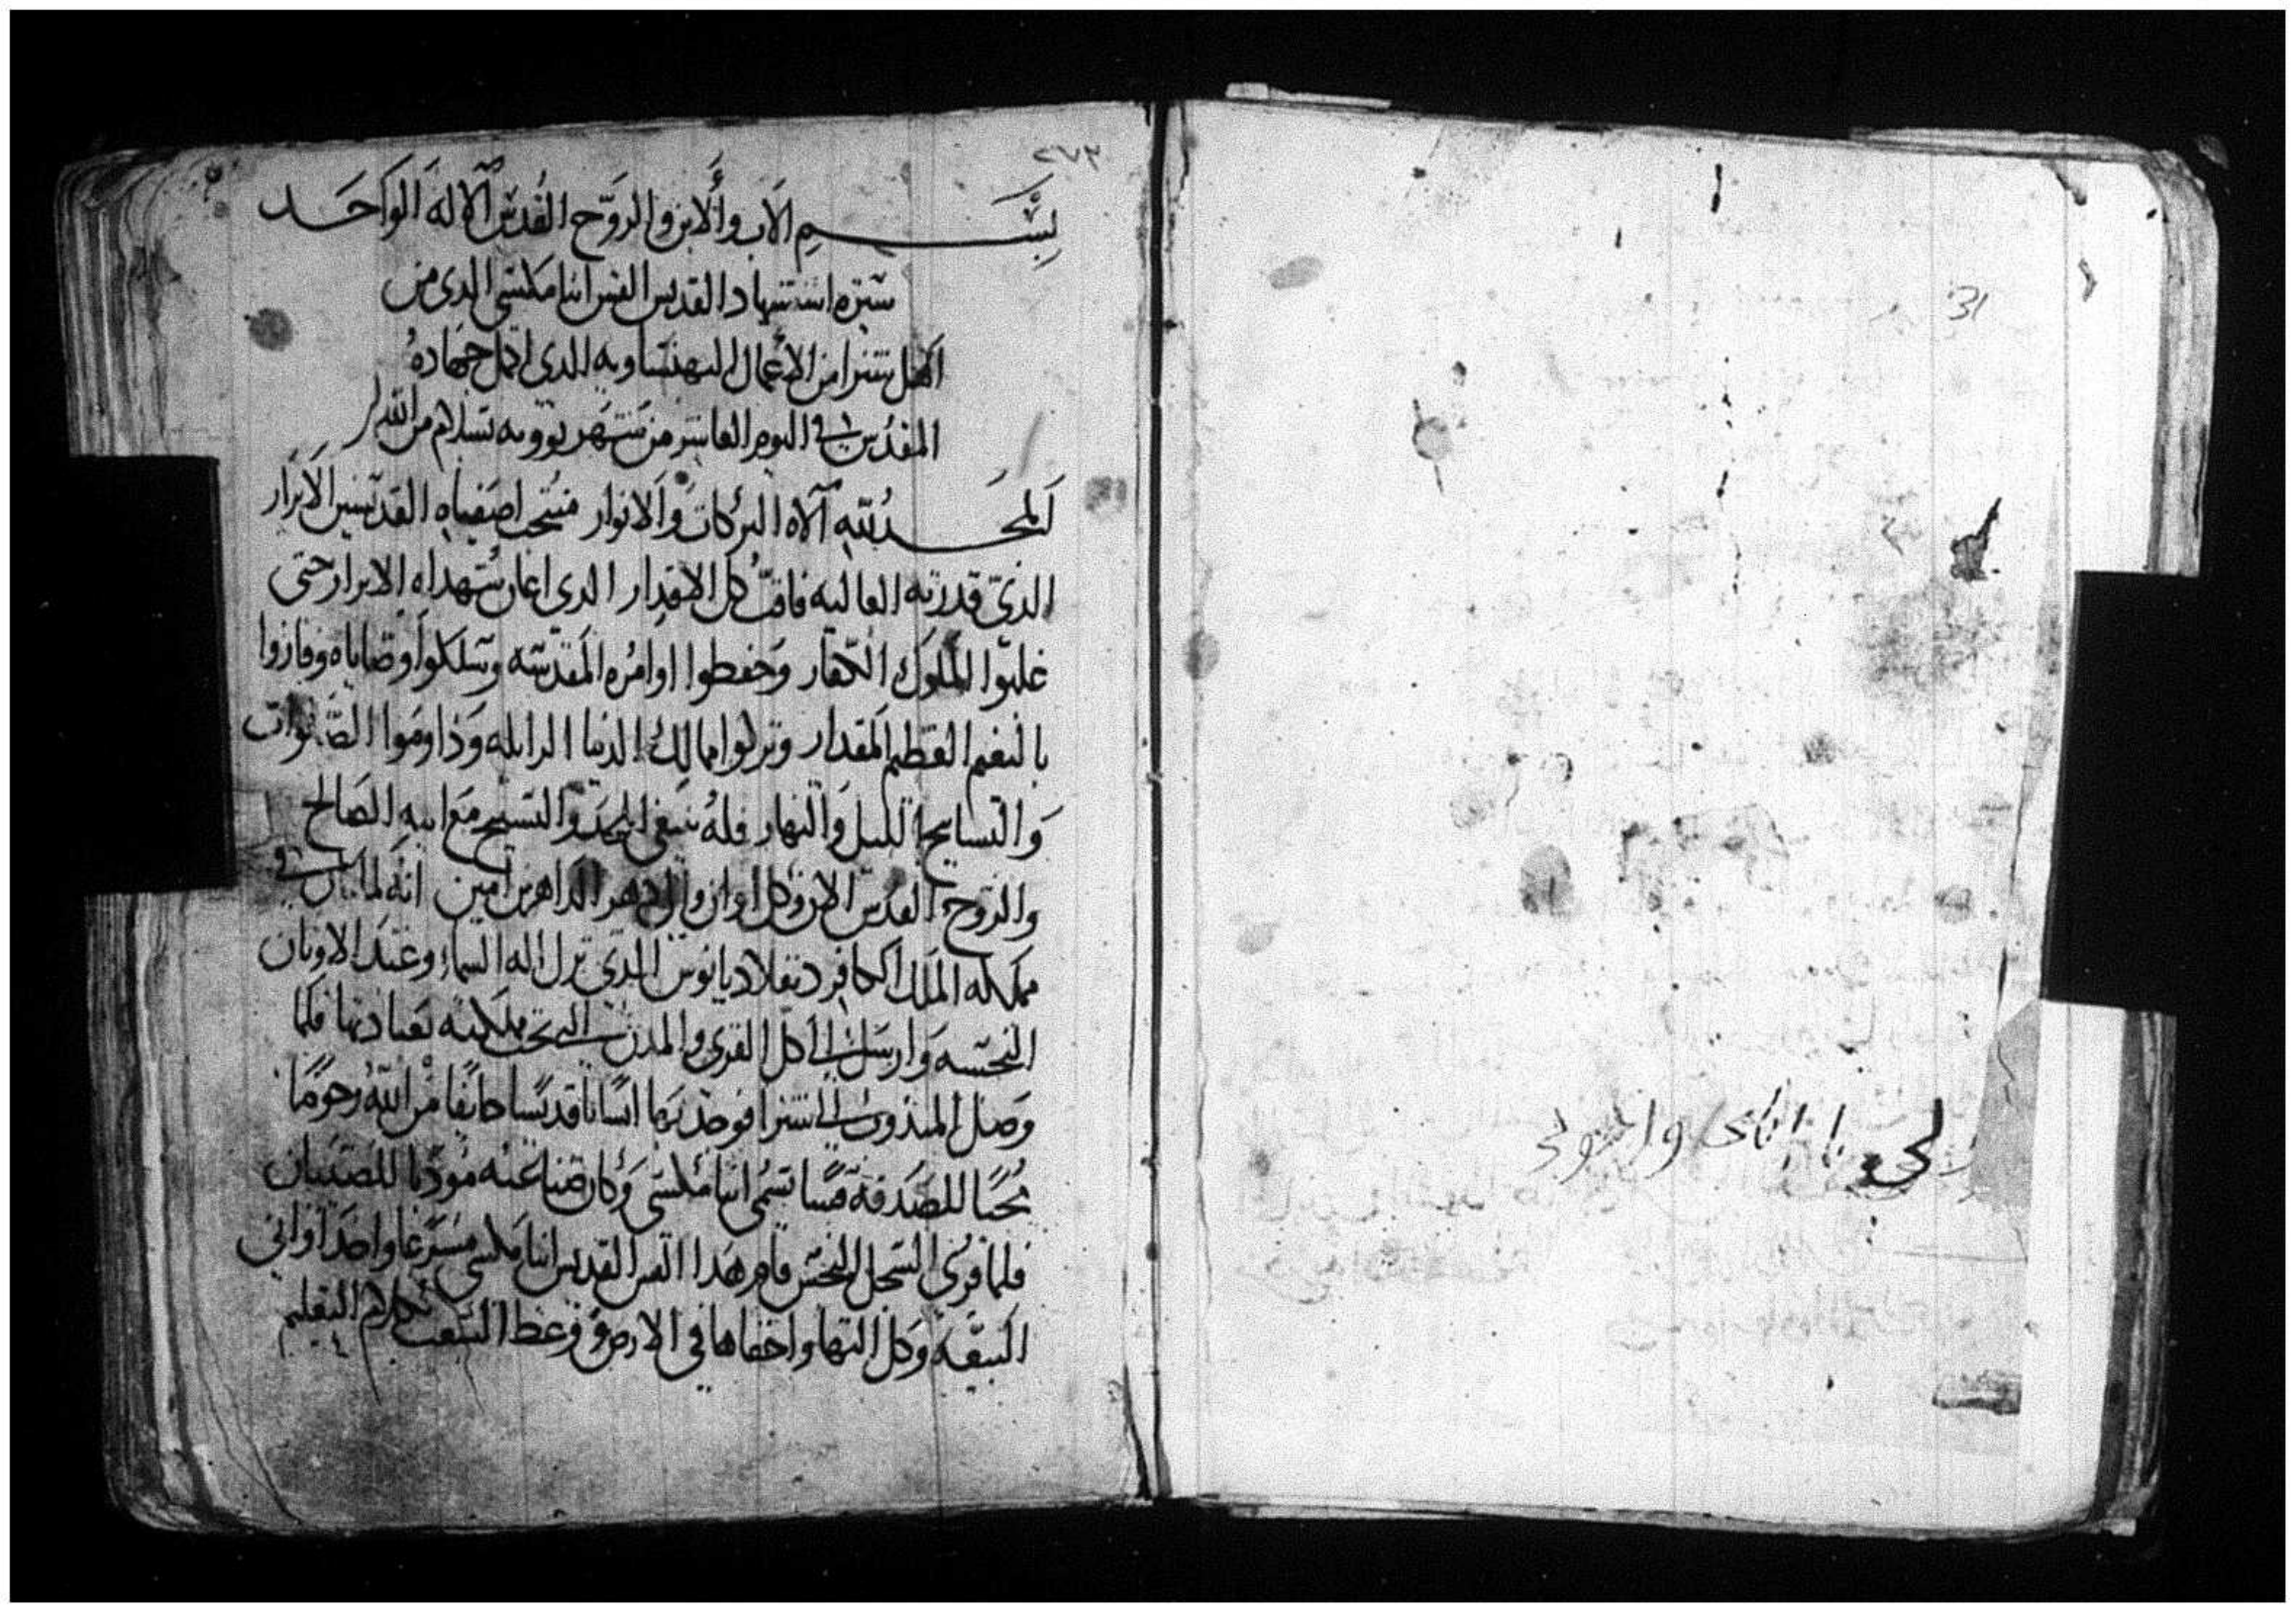 31
لي يا اباي واخوتي
٢٧٣
بســـم الاب والابن والروح القدس الاله الواحد
سيره استشهاد القديس القس انبا مكسي الدي من
اهل شنرا من الاعمال البهنساويه الدي اكمل جهاده
المقدس في اليوم العاشر من شهر بوونه بسلام من الله
الحمد لله الاه البركات والانوار منتخب اصفياه القديسين الابرار
الذي قدرته العاليه فاقت كل الاقدار الدي اعان شهداه الابرار حتى
غلبوا الملوك الكفار وحفظوا اوامره المقدسه وسلكوا وصاياه وفازوا
بالنعم العظيم المقدار وتركوا ممالك الدنيا الزايله وداوموا الصلوات
والتسابيح الليل والنهار فله ينبغي المجد والتسبيح مع ابيه الصالح
والروح القدس الان وكل اوان والى دهر الداهرين امين انه لما كان في
مملكه الملك الكافر دقلاديانوس الدي ترك اله السما وعبد الاوثان
النجسه وارسل الى كل القرى والمدن التي تحت مملكته بعبادتها فلما
وصل المندوب الى شنرا فوجد بها انسانا قديسا خايفا من الله رحوما
محبا للصدقه قسا تسمى انبا مكسي وكان صناعته مودبا للصبيان
فلما قرى السجل النجس قام هدا القس القديس انبا مكسي مسرعا واخد اواني
البيعه وكل التها واخفاها في الارض ووعظ الشعب بكلام التعليم